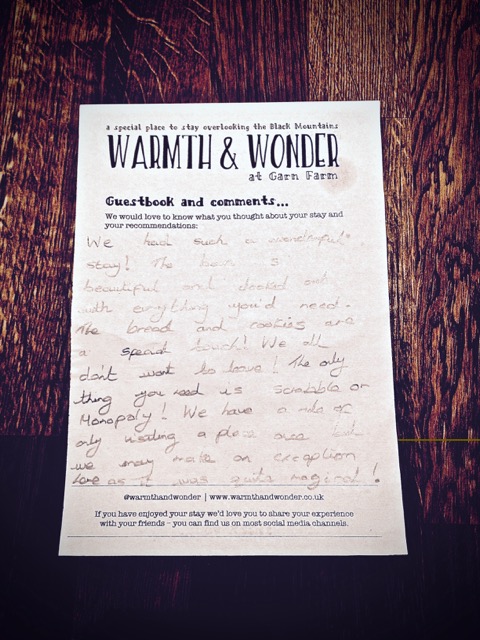 a special place to stay overlooking the Black Mountains
WARMTH & WONDER
at Garn Farm
Guestbook and comments...
We would love to know what you thought about your stay and
your recommendations:
We had such a wonderful
stay! The barn is
beautiful and decked out
with everything you'd need.
The bread and cookies are
a special touch! We all
don't want to leave! The only
thing you need is Scrabble or
Monopoly! We have a rule of
only visiting a place once but
we may make an exception
here as it was quite magical!
@warmthandwonder | www.warmthandwonder.co.uk
If you have enjoyed your stay we'd love you to share your experience
with your friends – you can find us on most social media channels.